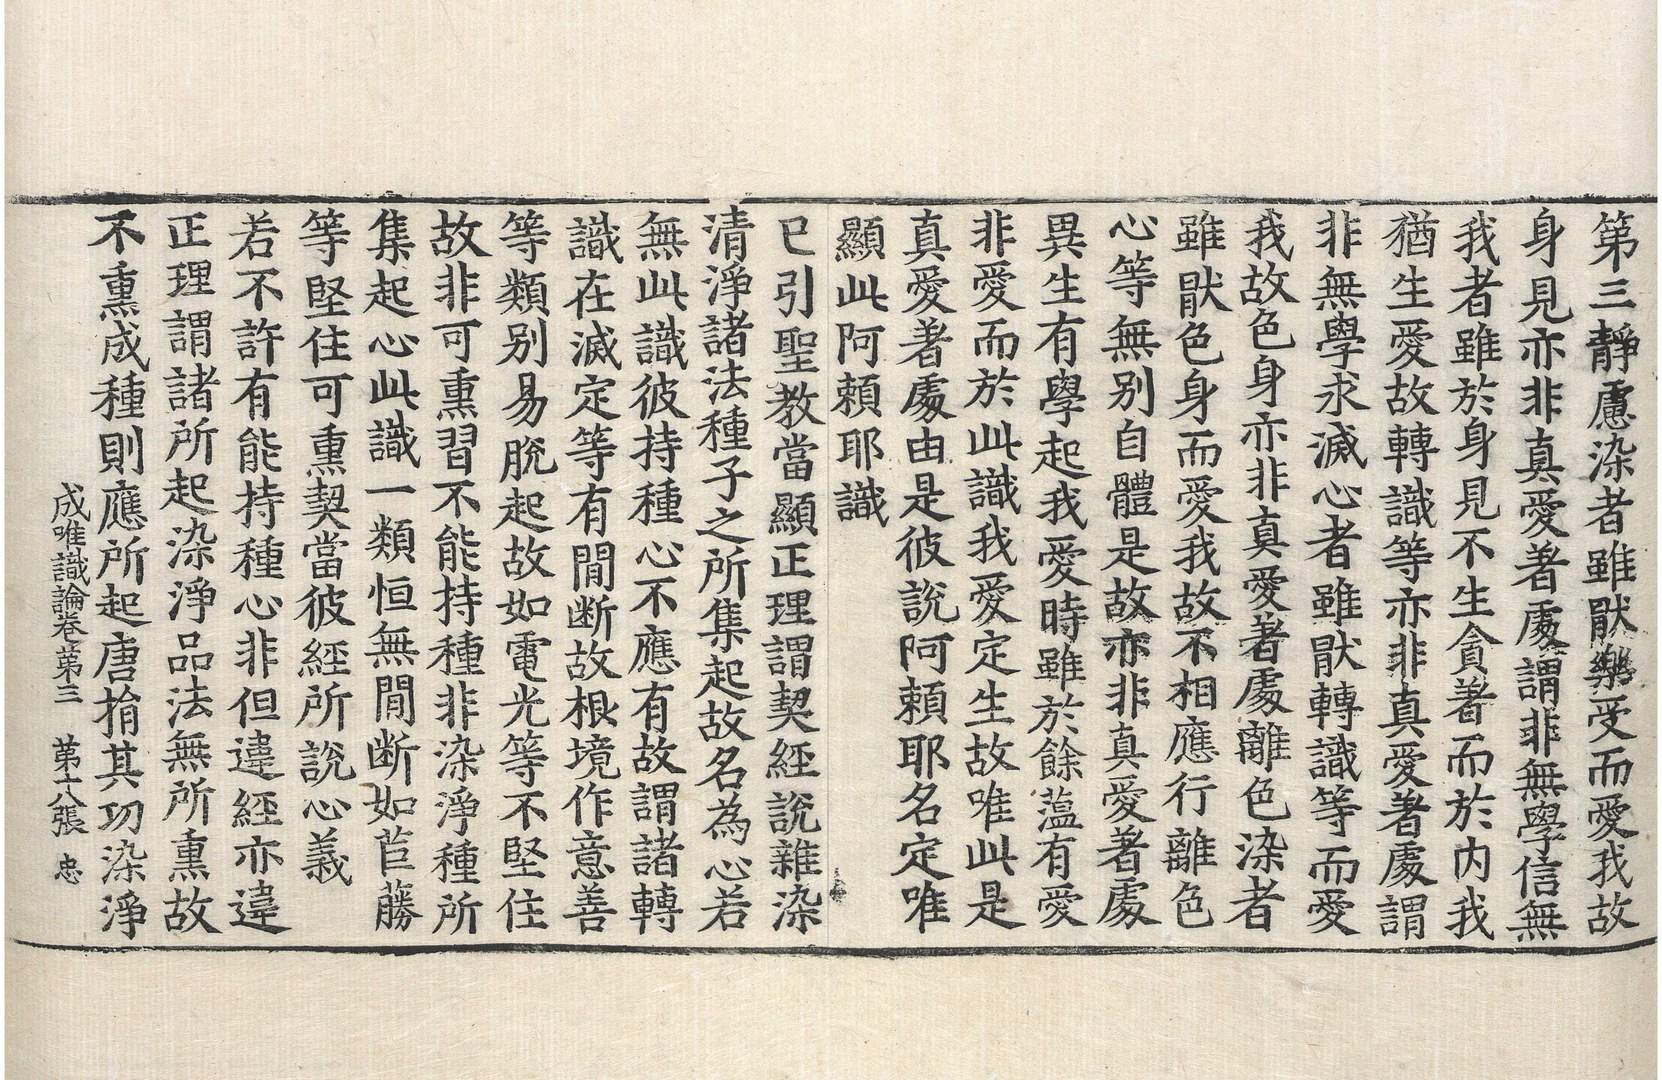 第三靜慮染者雖猒樂受而愛我故
身見亦非真愛著處謂非無學信無
我者雖於身見不生貪著而於內我
猶生愛故轉識等亦非真愛著處謂
非無學求滅心者雖猒轉識等而愛
我故色身亦非真愛著處離色染者
雖猒色身而愛我故不相應行離色
心等無別自體是故亦非真愛著處
異生有學起我愛時雖於餘薀有愛
非愛而於此識我愛定生故唯此是
真愛著處由是彼說阿賴耶名定唯
顯此阿賴耶識
已引聖教當顯正理謂契經說雜染
清淨諸法種子之所集起故名為心若
無此識彼持種心不應有故謂諸轉
識在滅定等有閒断故根境作意善
等類别易脫起故如電光等不堅住
故非可熏習不能持種非染淨種所
集起心此識一類恒無閒断如苣蕂
等堅住可熏契當彼經所說心義
若不許有能持種心非但違經亦違
正理謂諸所起染淨品法無所熏故
不熏成種則應所起唐捐其功染淨
成唯識論卷第三　第十八張　忠